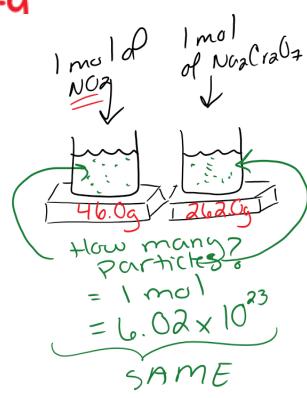 1 mol of
NO2
1 mol
of Na2Cr2O7
46.0g
262.0g
How many?
particles?
= 1 mol
= 6.02 x 10^23
SAME